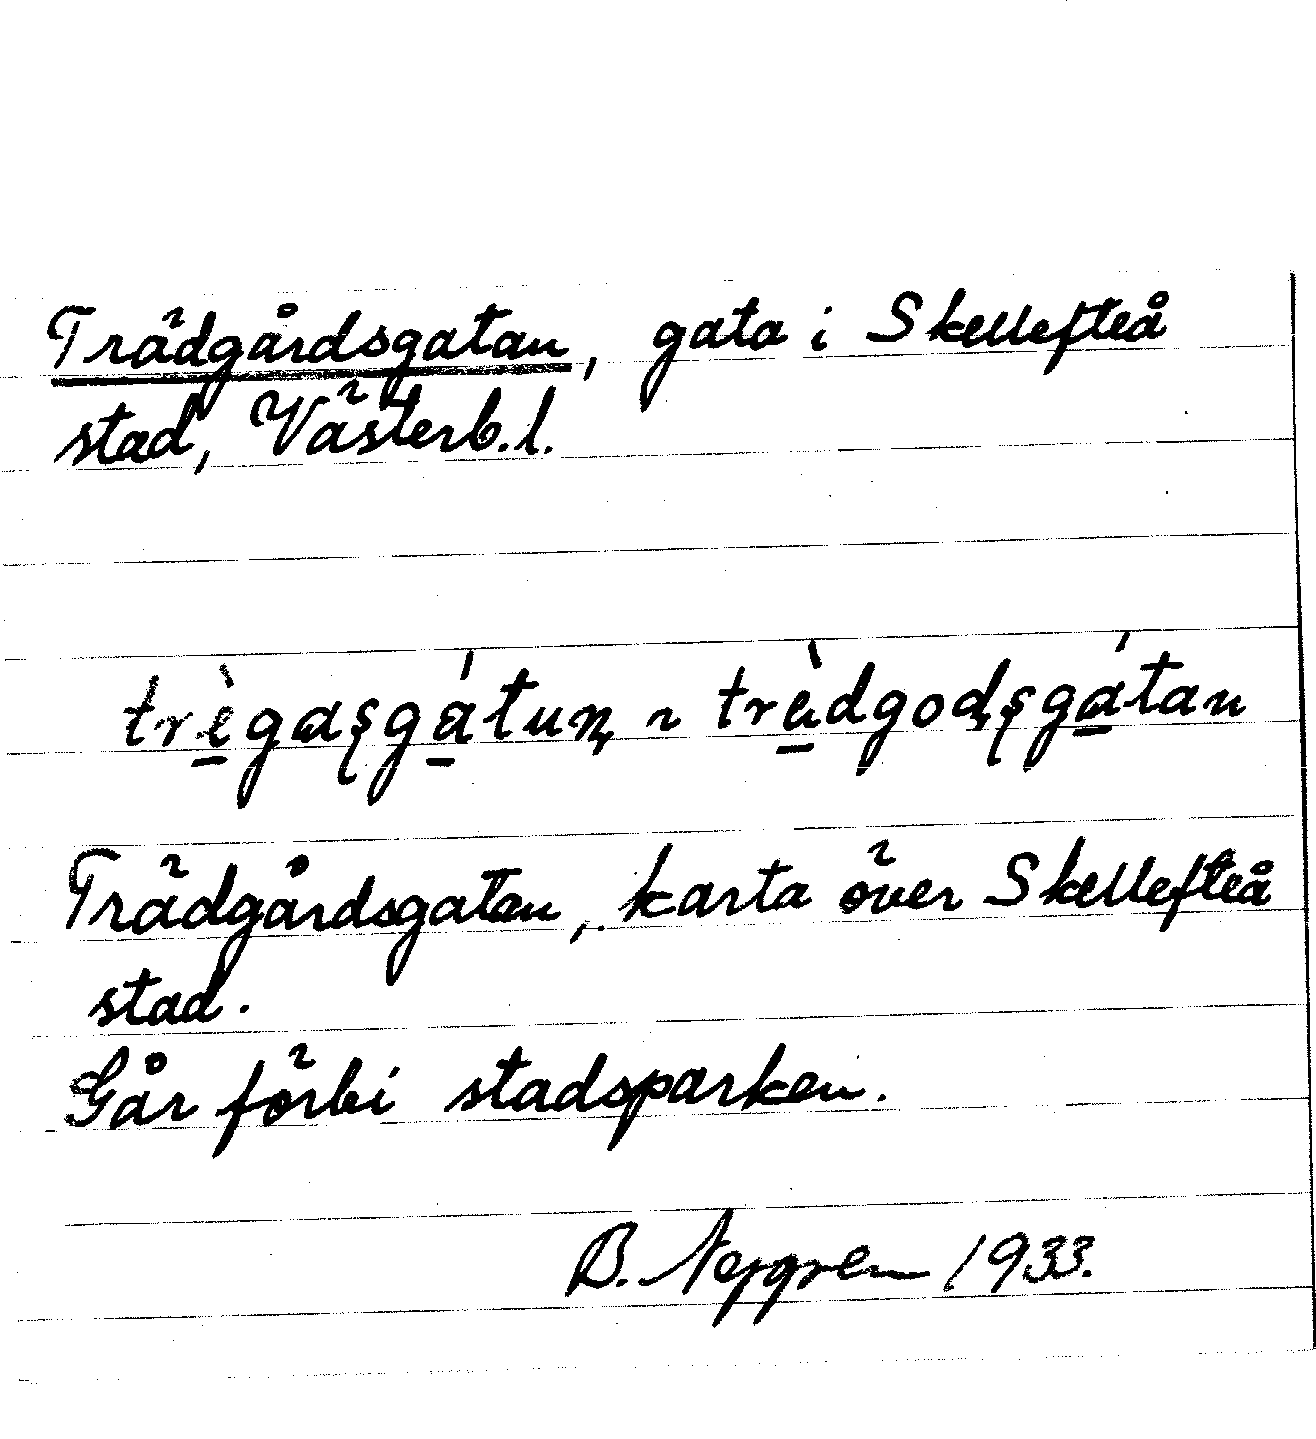 Trädgårdsgatan, gata i Skellefteå
stad, Västerb.l.
trè̱gasgá̱tun ~ trà̱dgodsgá̱tan
Trädgårdsgatan, karta över Skellefteå
stad.
Går förbi stadsparken.
B. 1933.